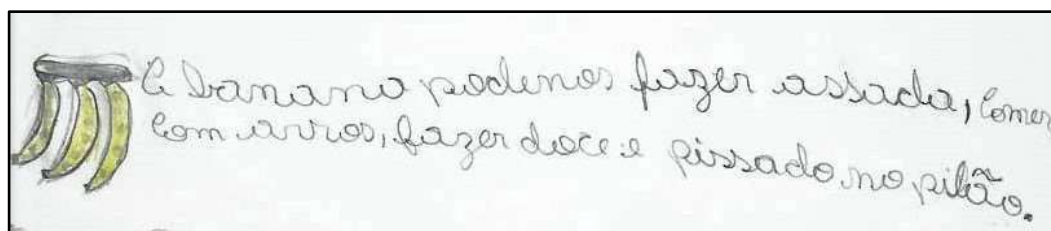 A banana podemos fazer assada, comer
com arros, fazer doce e pissado no pilão.